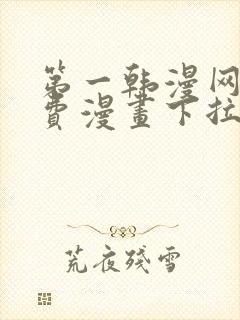 第一韩漫网
费漫畫下拉
荒夜殘雪